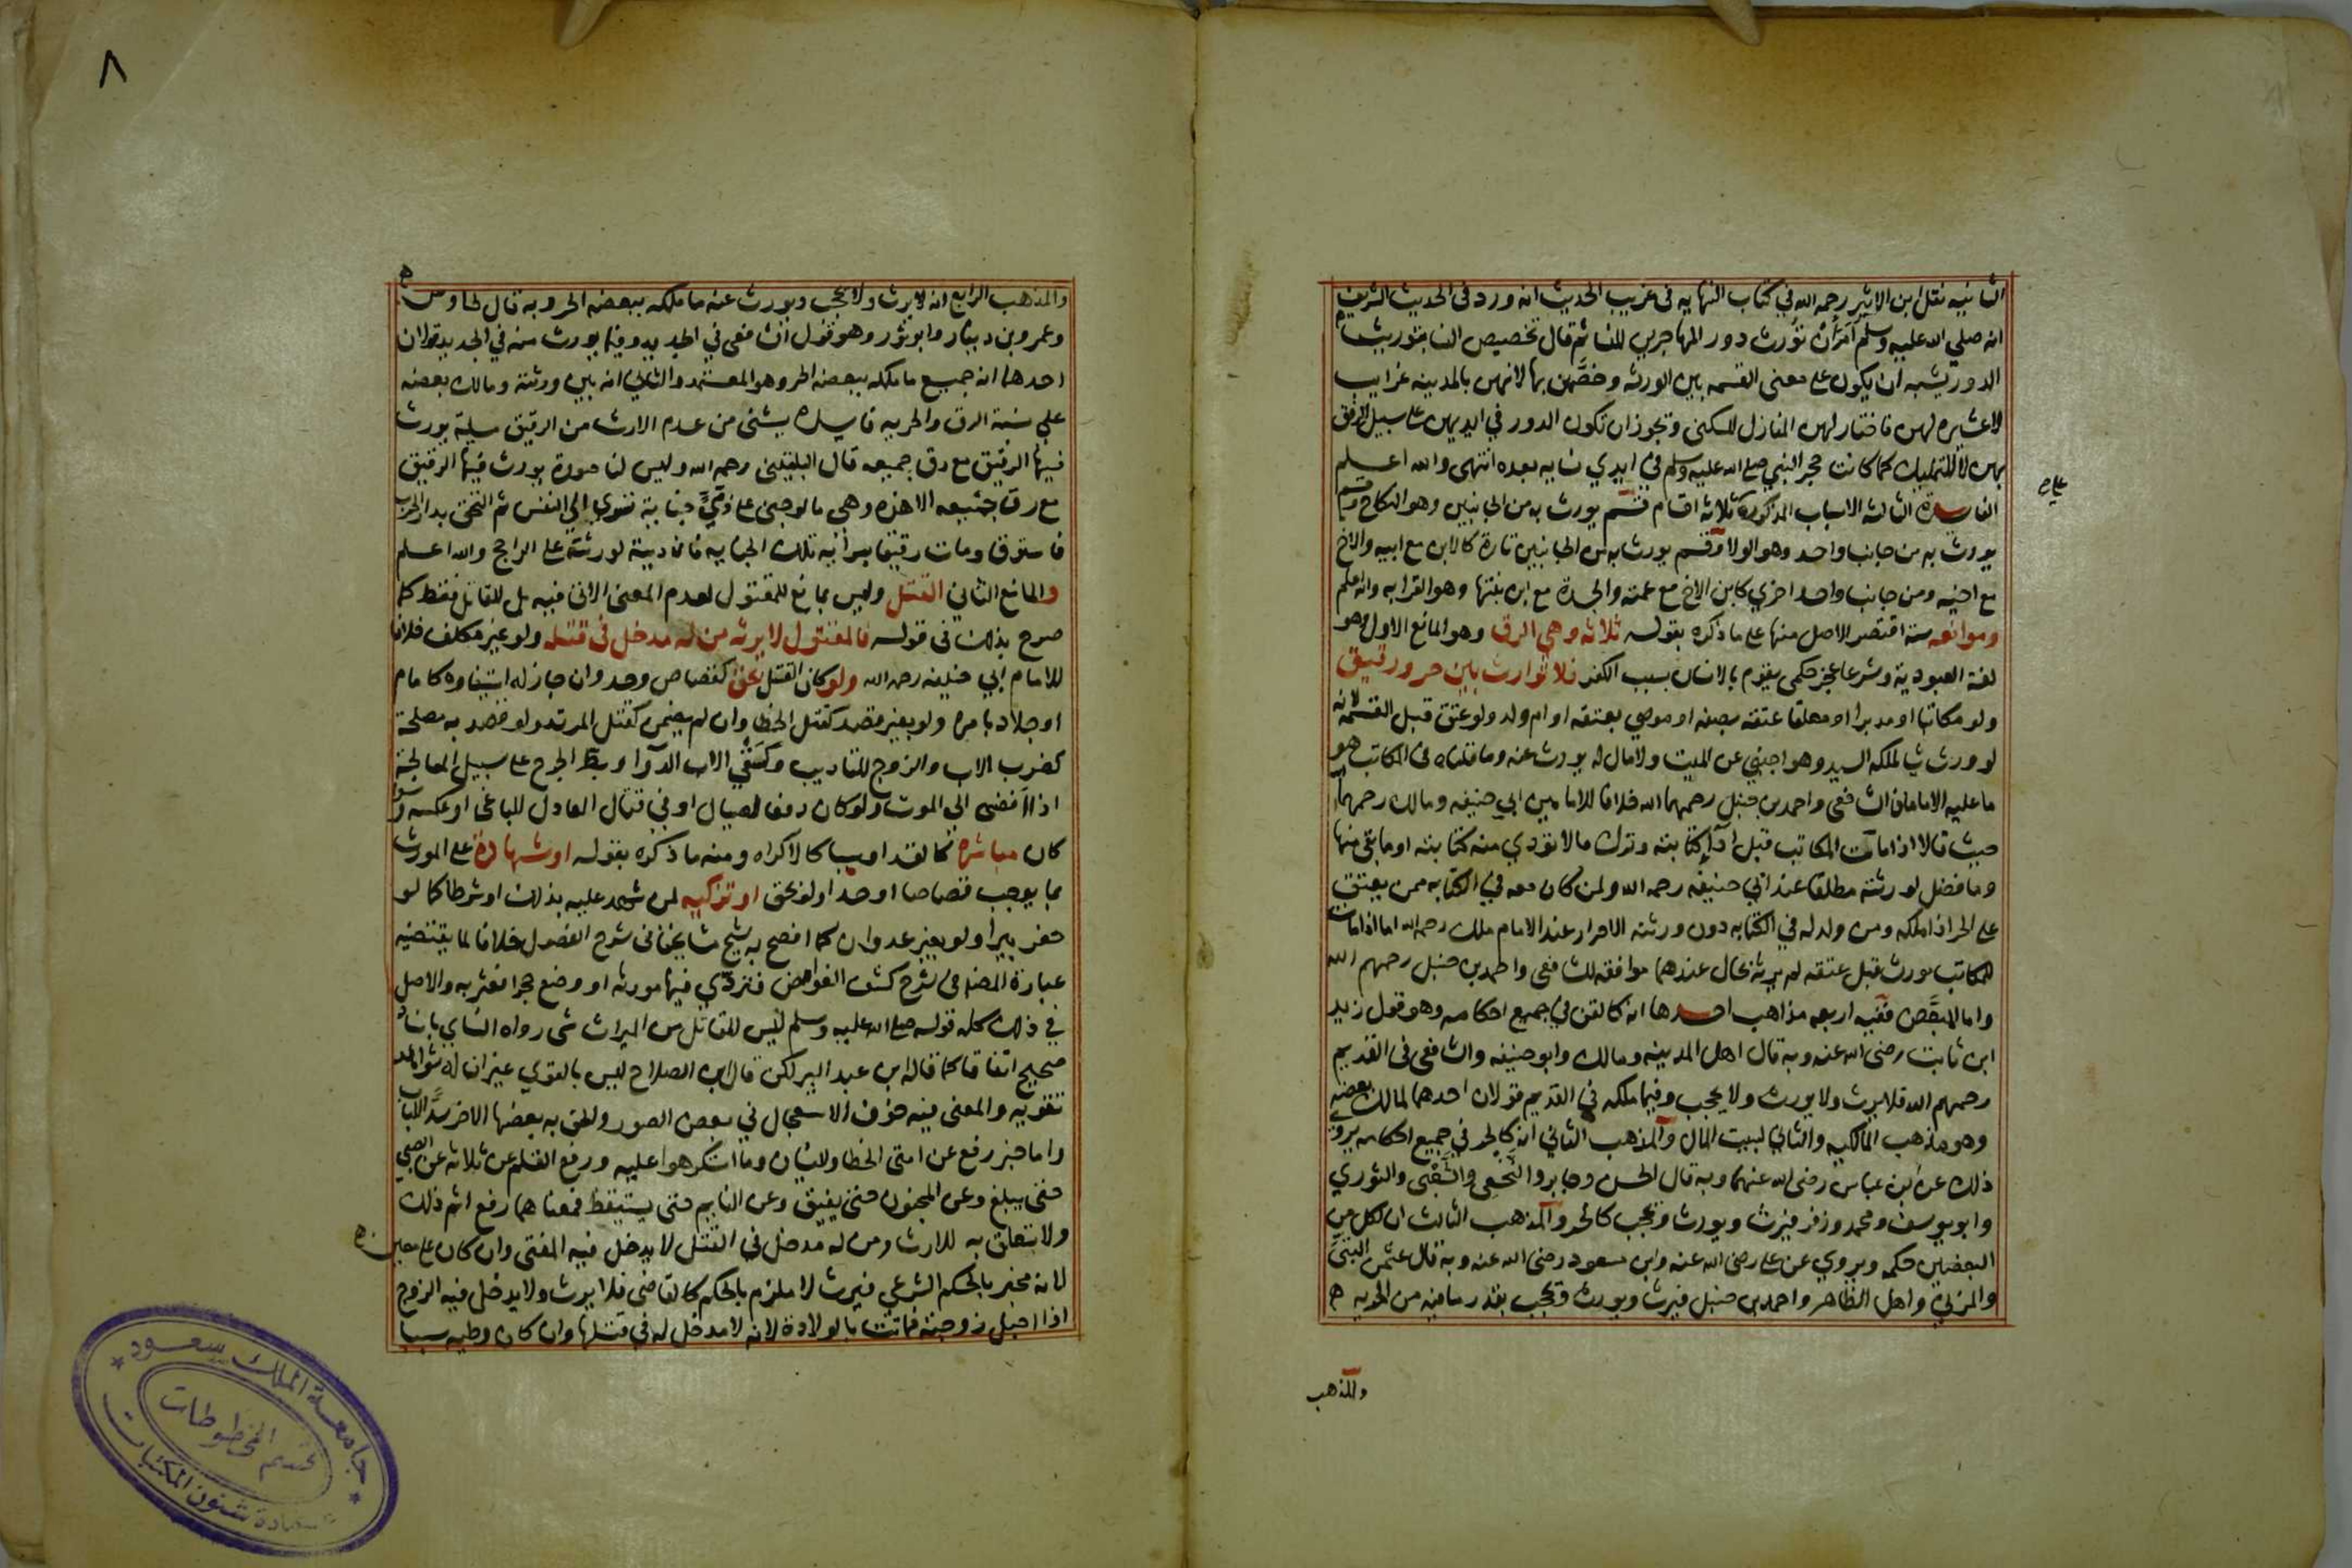 الثانيه نقل ابن الاثير رحمه الله في كتاب النهايه في غريب الحديث انه ورد في الحديث الشريف
انه صلي الله عليه وسلم امر ان تورث دور المهاجرين النسا ثم قال تخصيص النسا بتوريث
الدور يشبه ان يكون على معنى القسمه بين الورثه وخصهن بها لانهن بالمدينه غرايب
لا عشيره لهن فاختار لهن المنازل للسكنى ويجوز ان تكون الدور في ايديهن على سبيل الرفق
بهن لا للتمليك كما كانت حجر النبي صلى الله عليه وسلم في ايدي نسايه بعده انتهى والله اعلم
الفايدة الثالثه الاسباب المذكورة ثلاثه اقسام قسم يورث به من الجانبين وهو النكاح وقسم
يورث به من جانب واحد وهو الولا وقسم يورث به من الجانبين تارة كالابن مع ابيه والاخ
مع اخيه ومن جانب واحد اخري كابن الاخ مع عمته والجدة مع ابن بنتها وهو القرابه والله اعلم
وموانعه ستة اقتصر الاصل منها على ما ذكره بقوله ثلاثه وهي الرق وهو المانع الاول وهو
لغة العبودية وشرعا عجز حكمي يقوم بالانسان بسبب الكفر فلا توارث بين حر ورقيق
ولو مكاتبا او مدبرا او معلقا عتقه بصفه او موصى بعتقه او ام ولد ولو عتق قبل القسمه لانه
لو ورث شيا لملكه السيد وهو اجنبي عن الميت ولا مال له يورث عنه وما قلناه في المكاتب هو
ما عليه الامامان الشافعي واحمد بن حنبل رحمهما الله خلافا للامامين ابي حنيفه ومالك رحمهما
حيث قالا اذا مات المكاتب قبل ادآ كتابته وترك مالا تؤدي منه كتابته او ما بقي منها
وما فضل لورثته مطلقا عند ابي حنيفه رحمه الله ولمن كان معه في الكتابه ممن يعتق
على الحر اذا ملكه ومن ولد له في الكتابه دون ورثته الاحرار عند الامام ملك رحمه الله اما اذا مات
للمكاتب مورث قبل عتقه لم يرثه بحال عندهما موافقه للشافعي واحمد بن حنبل رحمهم الله
واما المبعض ففيه اربعه مذاهب احدها انه كالقن في جميع احكامه وهو قول زيد
ابن ثابت رضى الله عنه وبه قال اهل المدينه ومالك وابو حنيفه والشافعي في القديم
رحمهم الله فلا يرث ولا يورث ولا يحجب وفيما ملكه في القديم قولان احدهما لمالك بعضه
وهو مذهب المالكيه والثاني لبيت المال والمذهب الثاني انه كالحر في جميع احكامه يروي
ذلك عن ابن عباس رضى الله عنهما وبه قال الحسن وجابر والنخعي والشعبي والثوري
وابو يوسف ومحمد وزفر فيرث ويورث ويحجب كالحر والمذهب الثالث ان لكل من
البعضين حكمه ويروي عن على رضى الله عنه وابن مسعود رضى الله عنه وبه قال عثمن البتي
والمزني واهل الظاهر واحمد بن حنبل فيرث ويورث ويحجب بقدر ما فيه من الحريه
والمذهب
٨
والمذهب الرابع انه لا يرث ولا يحجب ويورث عنه ما ملكه ببعضه الحر وبه قال طاوس
وعمرو بن دينار وابو ثور وهو قول الشافعي في الجديد وفيما يورث منه في الجديد قولان
احدهما انه جميع ما ملكه ببعضه الحر وهو المعتمد والثاني انه بين ورثته ومالك بعضه
على نسبة الرق والحريه فايده يستثنى من عدم الارث من الرقيق مسيلة يورث
فيها الرقيق مع رق جميعه قال البلقيني رحمه الله وليس لنا صورة يورث فيها الرقيق
مع رق جميعه الا هذه وهي ما لو جنى على ذمي جناية تسري الي النفس ثم التحق بدار الحرب
فاسترق ومات رقيقا بسراية تلك الجنايه فان ديته لورثته على الراجح والله اعلم
والمانع الثاني القتل وليس بمانع للمقتول لعدم المعنى الاتي فيه بل للقاتل فقط كما
صرح بذلك في قوله فالمقتول لا يرثه من له مدخل في قتله ولو غير مكلف خلافا
للامام ابي حنيفه رحمه الله ولو كان القتل بحق كقصاص وحد وان جاز له استيفاوه كامام
او جلاد بامره ولو بغير قصد كقتل الخطا وان لم يضمن كقتل المرتد ولو قصد به مصلحة
كضرب الاب والزوج للتاديب وكسقي الاب الدوآ او بط الجرح على سبيل المعالجة
اذا افضى الي الموت ولو كان دفعا لصيال او في قتال العادل للباغي او عكسه وسوا
كان مباشرة كالقد او سببا كالاكراه ومنه ما ذكره بقوله او شهادة على المورث
بما يوجب قصاصا او حدا ولو بحق او تزكيه لمن شهد عليه بذلك او شرطا كما لو
حفر بيرا ولو بغير عدوان كما افصح به شيخ مشايخنا في شرح الفصول خلافا لما يقتضيه
عبارة المصنف في شرح كشف الغوامض فتردي فيها مورثه او وضع حجرا فعثر به والاصل
في ذلك كله قوله صلى الله عليه وسلم ليس للقاتل من الميراث شي رواه النساي باسناد
صحيح اتفاقا كما قاله ابن عبد البر لكن قال ابن الصلاح ليس بالقوي غير ان له شواهد
تقويه والمعنى فيه خوف الاستعجال في بعض الصور والحق به بعضها الاخر سدا للباب
واما خبر رفع عن امتي الخطا والنسيان وما استكرهوا عليه ورفع القلم عن ثلاثه عن الصبي
حتى يبلغ وعن المجنون حتى يفيق وعن النايم حتى يستيقظ فمعناهما رفع اثم ذلك
ولا تعلق به للارث ومن له مدخل في القتل لا يدخل فيه المفتي وان كان على معين
لانه مخبر بالحكم الشرعي فيرث لا ملزم بالحكم كالقاضي فلا يرث ولا يدخل فيه الزوج
اذا احبل زوجته فماتت بالولادة لانه لا مدخل له في قتلها وان كان وطيه سببا
جامعة الملك سعود
قسم المخطوطات
عمادة شئون المكتبات